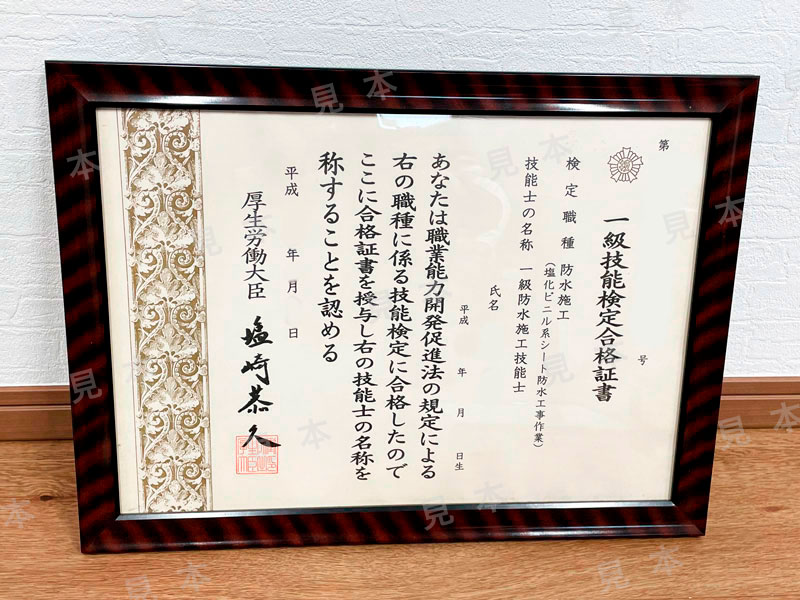 第　　号
一級技能検定合格証書
検定職種 防水施工
(塩化ビニル系シート防水工事作業)
技能士の名称 一級防水施工技能士
氏名
平成　年　月　日生
あなたは職業能力開発促進法の規定による
右の職種に係る技能検定に合格したので
ここに合格証書を授与し右の技能士の名称を
称することを認める
平成　年　月　日
厚生労働大臣 塩崎恭久
見本
見本
見本
見本
見本
見本
見本
見本
見本
見本
見本
見本